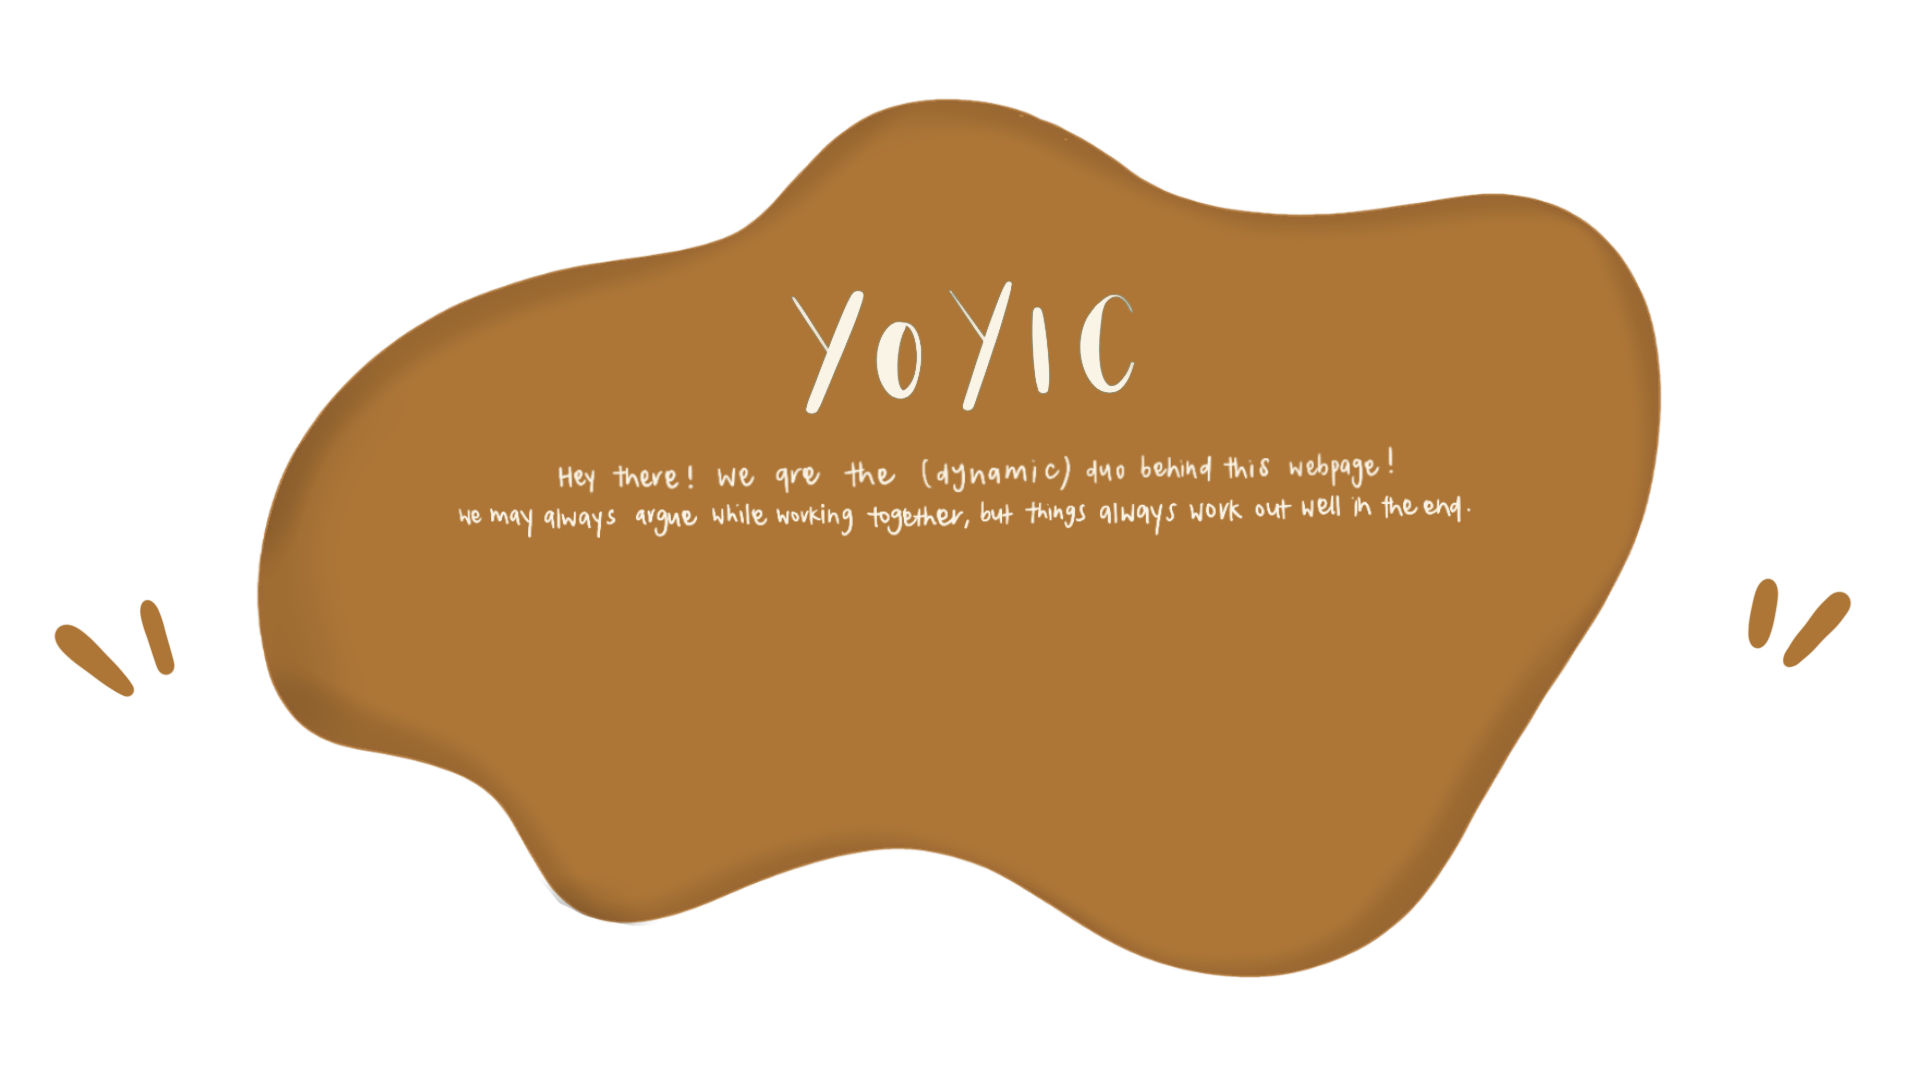 YoYIC
Hey there! We are the (dynamic) duo behind this webpage!
We may always argue while working together, but things always work out well in the end.